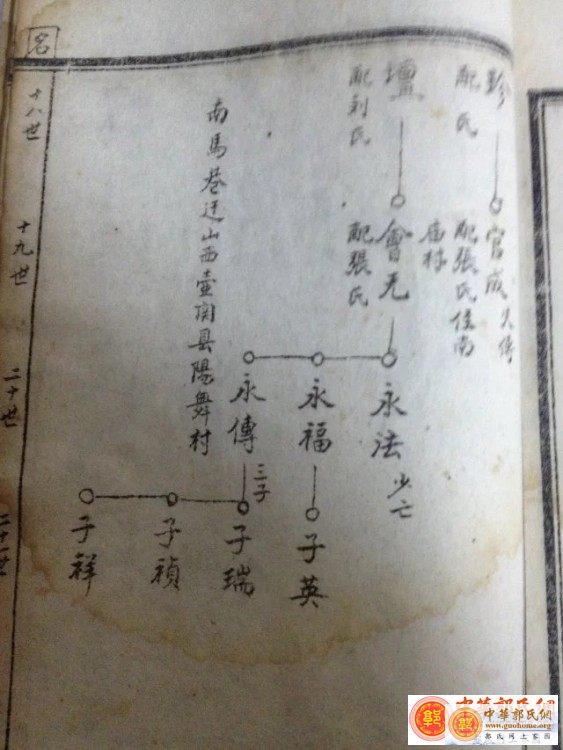 名
十八世
十九世
二十世
二十一世
珍
配 氏
官成 失傳
配張氏住南
庙村
壇
配刘氏
會元
配張氏
永法 少亡
永福
子英
永傳 三子
子瑞
子禎
子祥
南馬巷迁山西壺関县陽舞村
中華郭氏網
www.guohome.org
郭氏网上家园